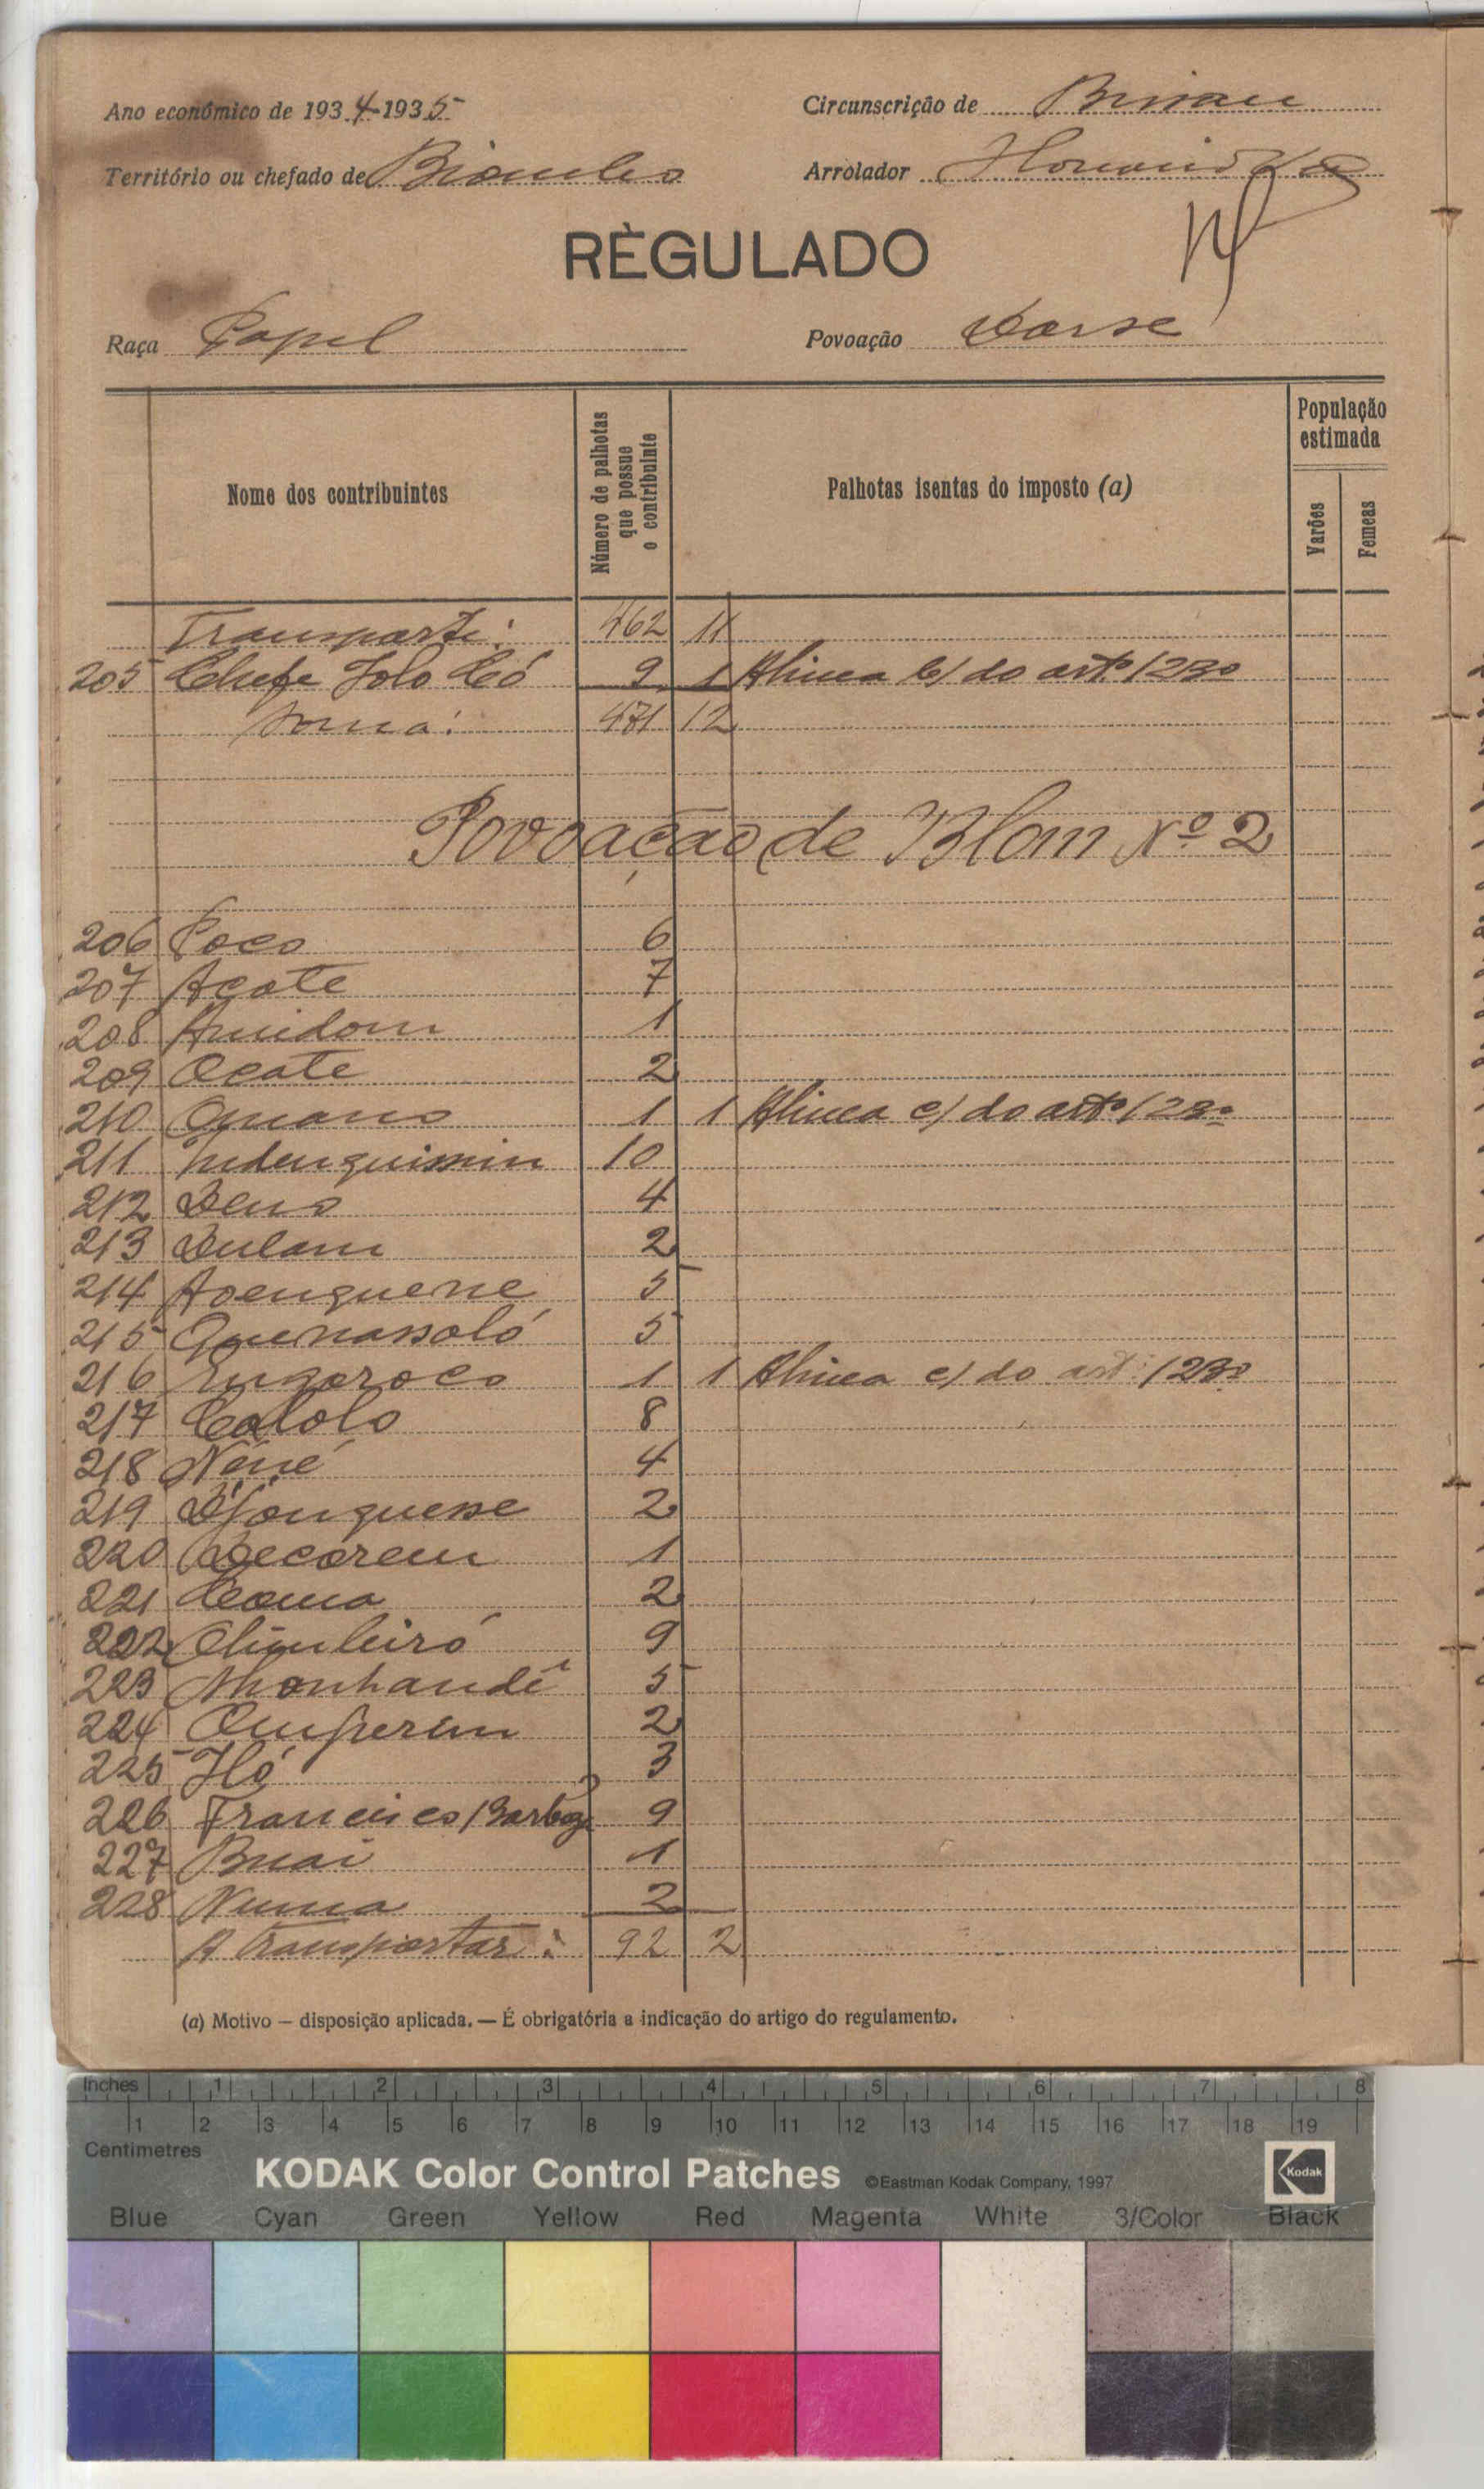 Ano económico de 1934-1935
Circunscrição de Bissau
Território ou chefado de Biombo
Arrolador
RÈGULADO
Raça Papel
Povoação Dorse
Nome dos contribuintes
Número de palhotas que possue o contribuinte
Palhotas isentas do imposto (a)
População estimada
Varões
Femeas
Transporte: 462 11
205 Chefe Jolo Có 9 1 Alinea b) do artº 123º
Soma: 471 12
Povoação de Blom Nº 2
206 Poco 6
207 Acate 7
208 Amidom 1
209 Ocate 2
210 Omano 1 1 Alinea c) do artº 123º
211 Indenquimin 10
212 Deus 4
213 Dulam 2
214 Aoenguene 5
215 Quenassoló 5
216 Engoroco 1 1 Alinea c) do artº 123º
217 Cololo 8
218 Néné 4
219 Djonguesse 2
220 Decorem 1
221 Coma 2
222 9
223 Monhandé 5
224 Omperim 2
225 Hó 3
226 Francisco Barboza 9
227 Buai 1
228 Numa 2
A transportar: 92 2
(a) Motivo — disposição aplicada. — É obrigatória a indicação do artigo do regulamento.
Inches 1 2 3 4 5 6 7 8
Centimetres 1 2 3 4 5 6 7 8 9 10 11 12 13 14 15 16 17 18 19
KODAK Color Control Patches ©Eastman Kodak Company, 1997 Kodak
Blue Cyan Green Yellow Red Magenta White 3/Color Black